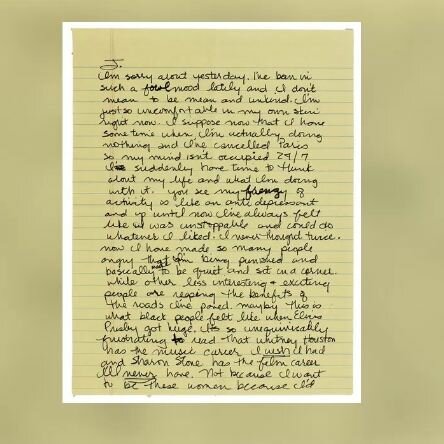 J.
I'm sorry about yesterday. I've been in
such a foul mood lately and I don't
mean to be mean and unkind. I'm
just so uncomfortable in my own skin
right now. I suppose now that I have
some time when I'm actually doing
nothing and I've cancelled Paris
so my mind isn't occupied 24/7
I suddenly have time to think
about my life and what I'm doing
with it. you see my frenzy of
activity is like an anti depressant
and up until now I've always felt
like I was unstoppable and could do
whatever I liked. I never thought twice.
now I have made so many people
angry that I'm being punished and
basically to be quiet and sit in a corner.
while other less interesting + exciting
people are reaping the benefits of
the roads I've paved. maybe this is
what black people felt like when Elvis
Presley got huge. It's so unequivocably
frustrating to read that Whitney Houston
has the music career I wish I had
and Sharon Stone has the film career
I'll never have. Not because I want
to be these women because I'd